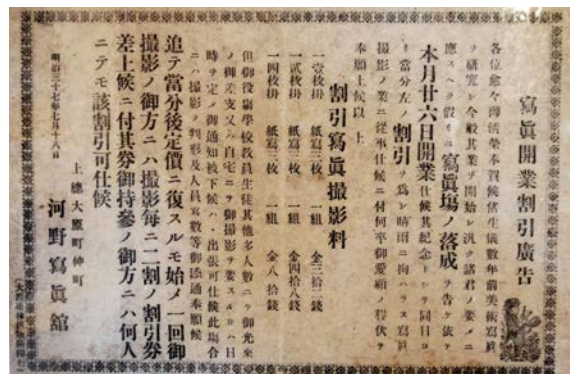 寫眞開業割引廣告
各位愈々御清榮奉賀候陳生儀數年前美術寫眞
ヲ研究シ今般其業ヲ開始シ汎ク諸君ノ要メニ
應スヘク假リニ寫眞塲ノ落成ヲ告ケ依テ
本月廿六日開業仕候其紀念トシテ同日ヨ
リ當分左ノ割引ヲ爲シ晴雨ニ拘ハラス寫眞
撮影ノ業ニ從事仕候ニ付何卒御愛顧ノ程伏テ
奉願上候以上
割引寫眞撮影料
一壹枚掛 紙寫三枚 一組 金三十二錢
一貳枚掛 紙寫三枚 一組 金四拾八錢
一四枚掛 紙寫二枚 一組 金八拾錢
但御役塲學校敎員生徒其他多人數ニテ御光來
ノ御差支又ハ自宅ニテ御撮影ヲ要スル時ハ日
時ヲ定ノ御通知被下候ハヽ出張可仕候此塲合
ニハ撮影ノ判形及人員寫數等御添通奉願候
追テ當分後定價ニ復スルモ始メ一回御
撮影ノ御方ニハ撮影每ニ一割ノ割引券
差上候ニ付其券御持參ノ御方ニハ何人
ニテモ該割引可仕候
明治三十七年七月十八日
上總大原町仲町
河野寫眞舘